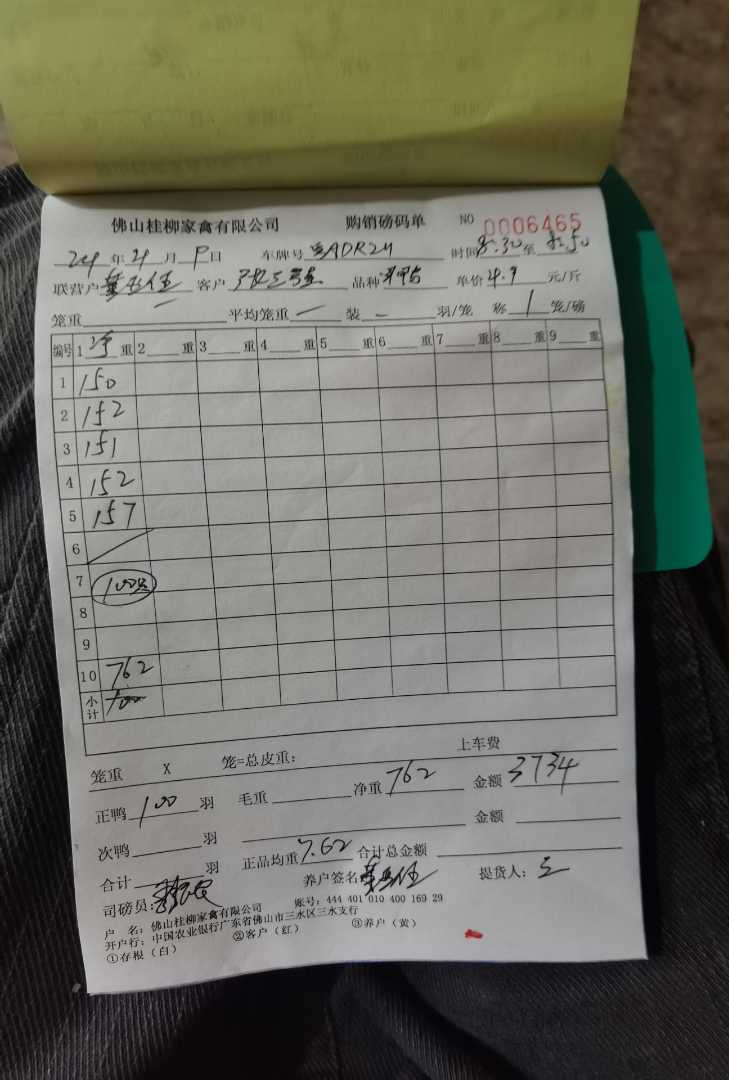 佛山桂柳家禽有限公司 购销磅码单 NO 0006465
24 年 4 月 日 车牌号 ADR24 时间 8:30 至 8:50
联营户 客户 品种 单价 4.9 元/斤
笼重 平均笼重 一 装 一 羽/笼 称 1 笼/磅
编号 1 净 重 2 重 3 重 4 重 5 重 6 重 7 重 8 重 9 重
1 150
2 152
3 151
4 152
5 157
6
7 100只
8
9
10 762
小计 100
笼重 X 笼=总皮重: 上车费
正鸭 100 羽 毛重 净重 762 金额 3734
次鸭 羽 金额
合计 羽 正品均重 7.62 合计总金额
司磅员: 养户签名 提货人:
户 名: 佛山桂柳家禽有限公司 账号: 444 401 010 400 169 29
开户行: 中国农业银行广东省佛山市三水区三水支行
①存根(白) ②客户(红) ③养户(黄)